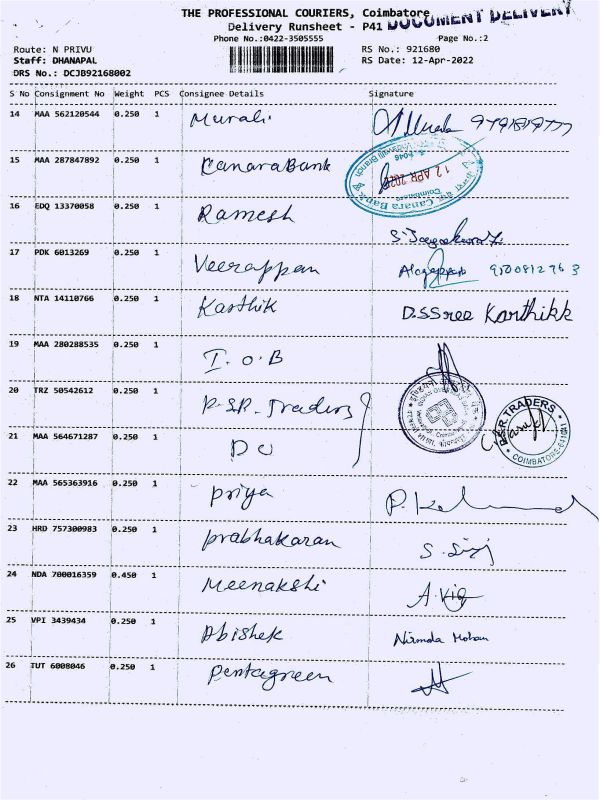 THE PROFESSIONAL COURIERS, Coimbatore
DOCUMENT DELIVERY
Delivery Runsheet - P41
Phone No.:0422-3505555
Page No.:2
Route: N PRIVU
RS No.: 921680
Staff: DHANAPAL
RS Date: 12-Apr-2022
DRS No.: DCJB92168002
S No Consignment No Weight PCS Consignee Details Signature
14 MAA 562120544 0.250 1 Murali
15 MAA 287847892 0.250 1 Canara Bank
Canara Bank
12 APR 2022
Coimbatore
16 EDQ 13370058 0.250 1 Ramesh
17 PDK 6013269 0.250 1 Veerappan Alagappan
18 NTA 14110766 0.250 1 Karthik D.SSree Karthikk
19 MAA 280288535 0.250 1 I.O.B
20 TRZ 50542612 0.250 1 P.S.R. Traders
TRADERS
COIMBATORE-641041
21 MAA 564671287 0.250 1 DO
22 MAA 565363916 0.250 1 Priya
23 HRD 757300983 0.250 1 Prabhakaran
24 NDA 700016359 0.450 1 Meenakshi
25 VPI 3439434 0.250 1 Abishek Nirmala Mohan
26 TUT 6008046 0.250 1 Pentagreen